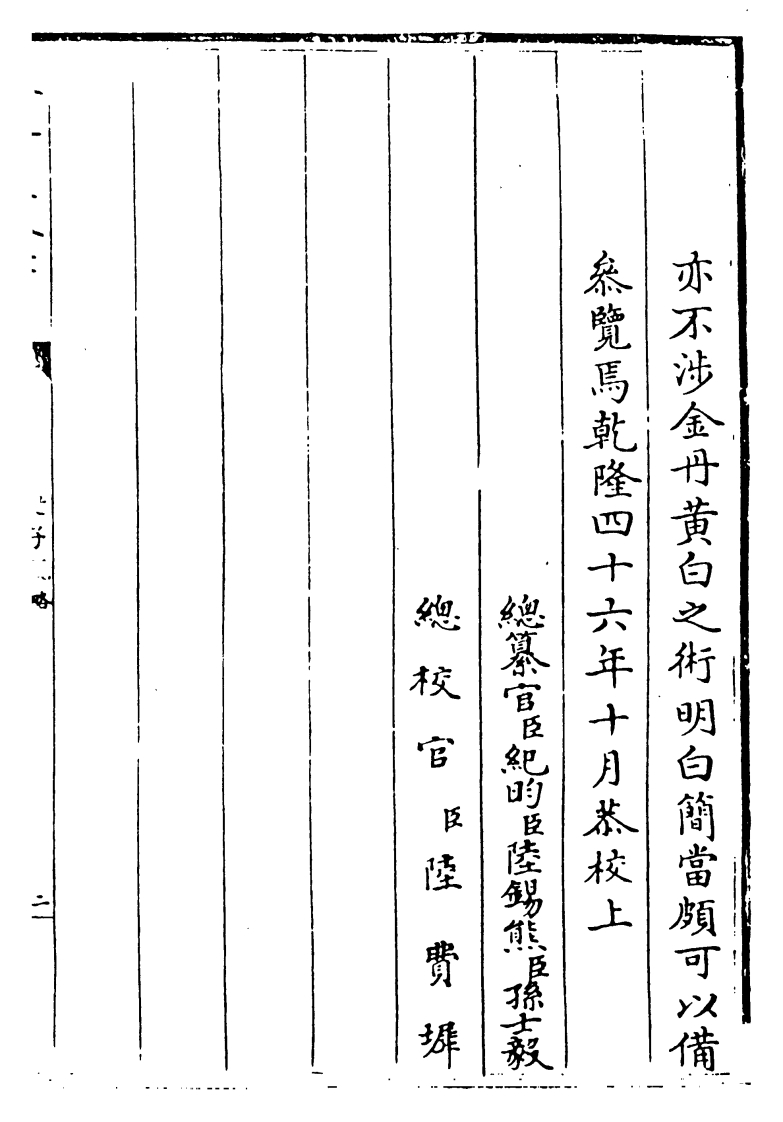 亦不涉金丹黄白之術明白簡當頗可以備
叅覽焉乾隆四十六年十月恭校上
總纂官臣紀昀臣陸錫熊臣孫士毅
總校官臣陸費墀
二